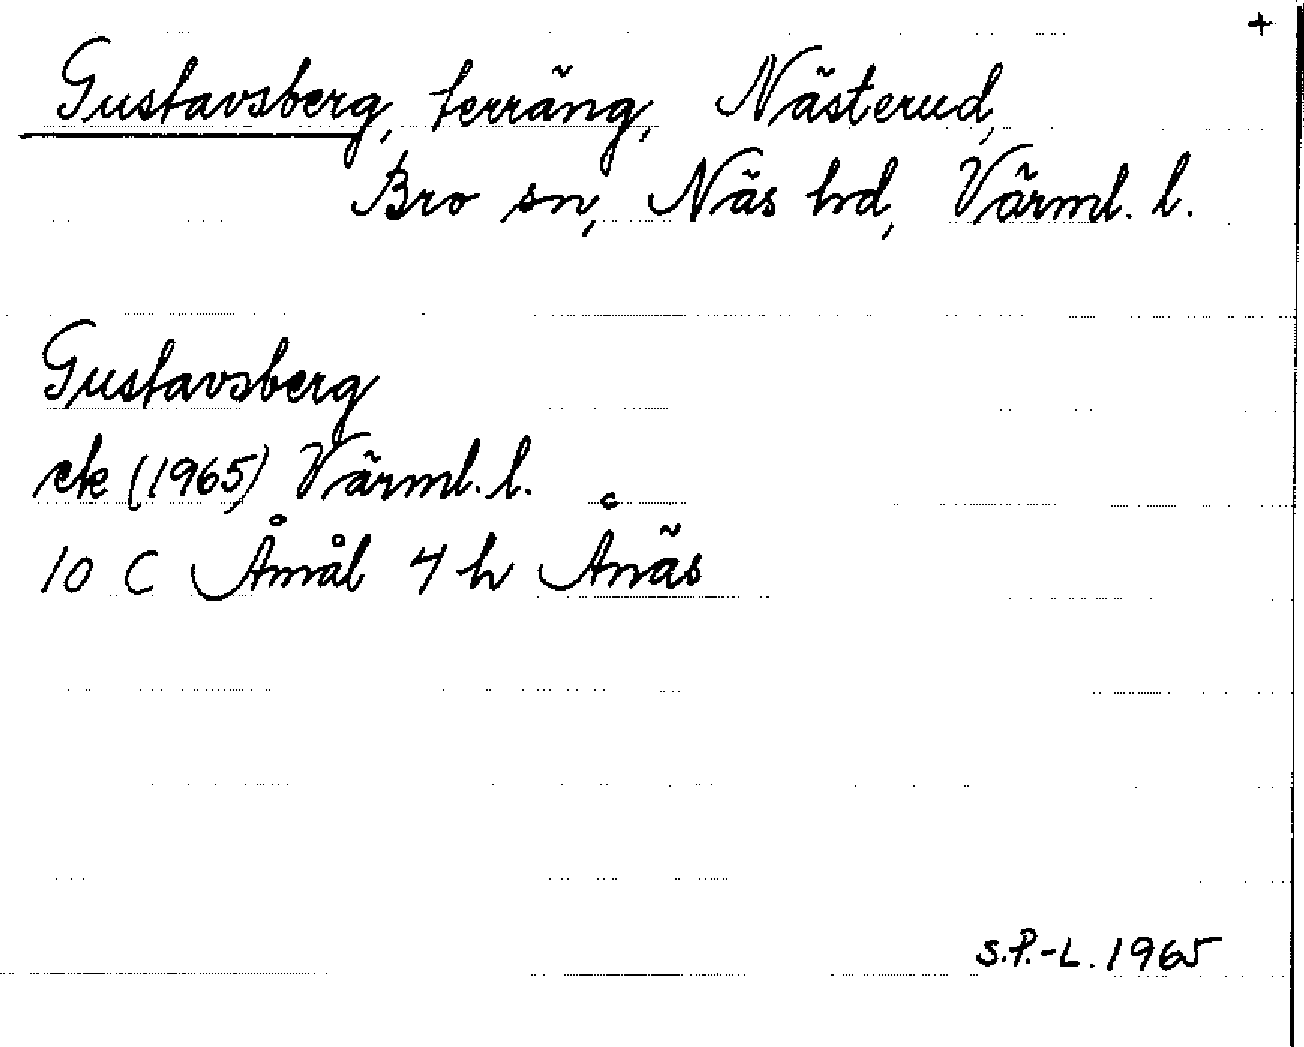 +
Gustavsberg, terräng, Nästerud,
Bro sn, Näs hd, Värml. l.
Gustavsberg
ek (1965) Värml. l.
10 C Åmål 4 h Ånäs
S.P.-L. 1965